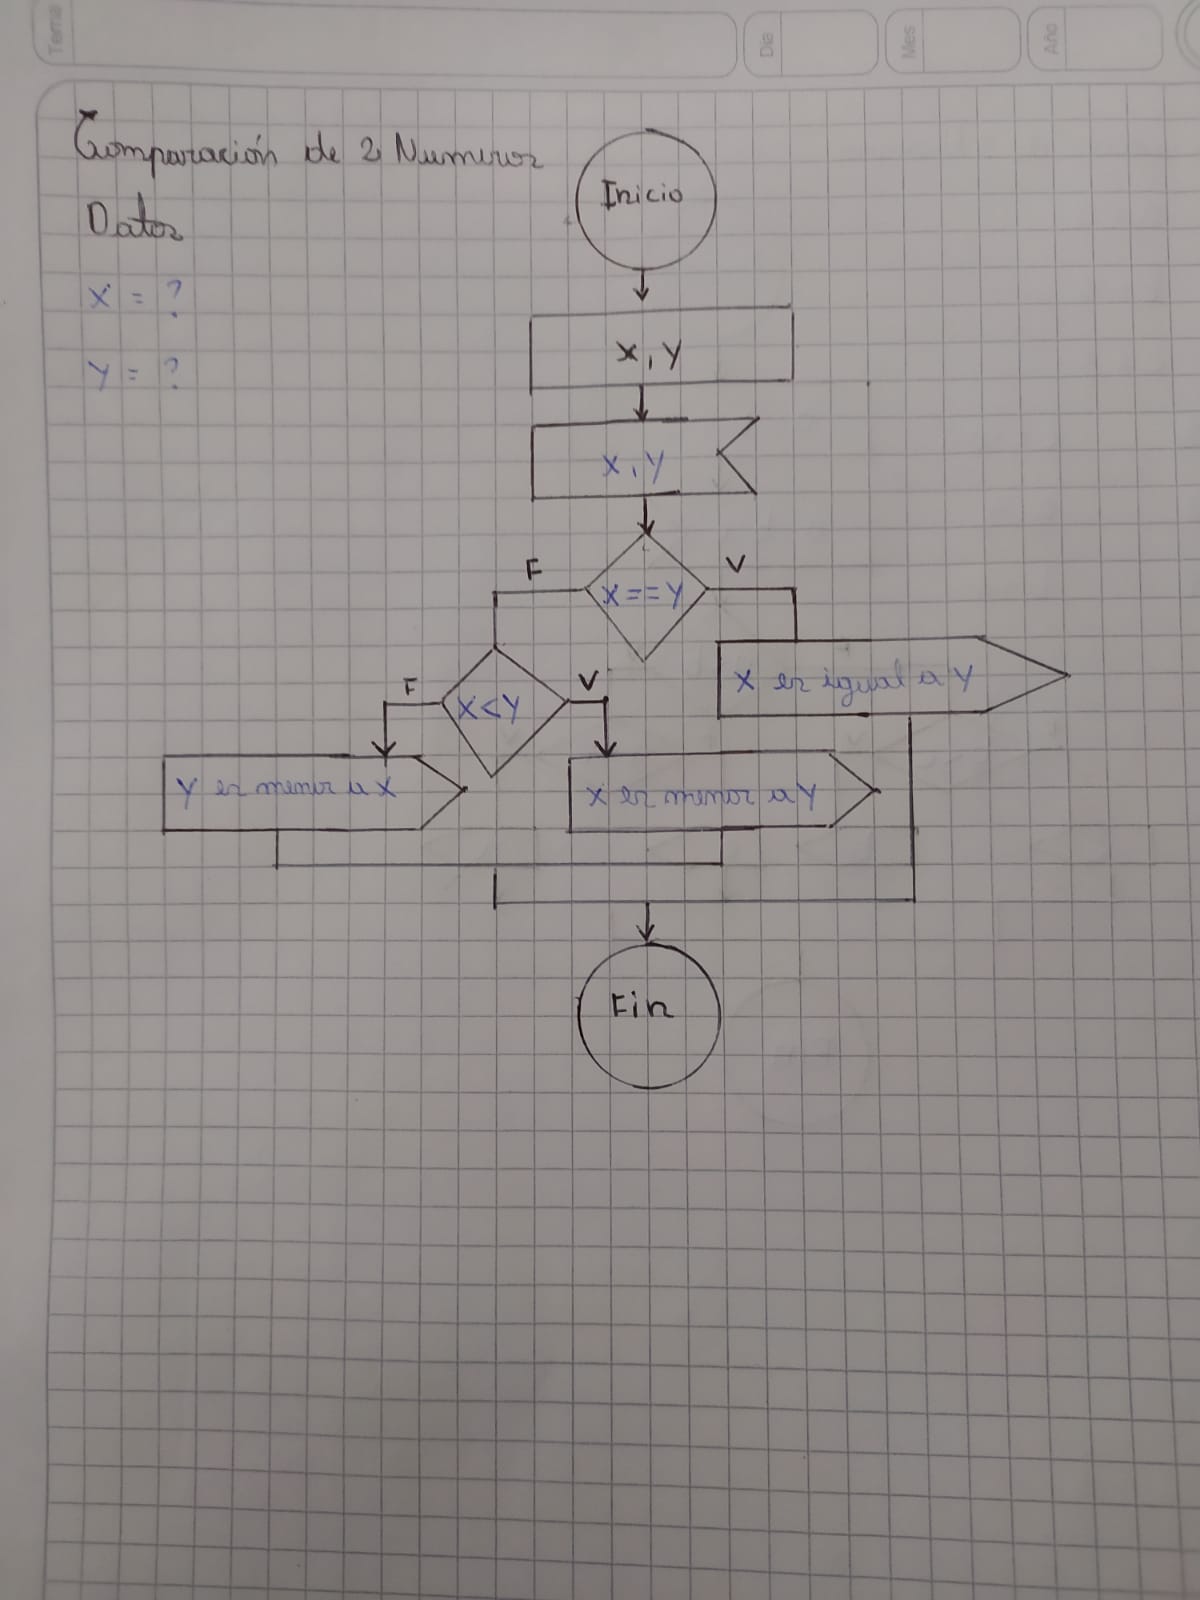 Tema
Día
Mes
Año
Comparación de 2 Numeros
Datos
X = ?
Y = ?
Inicio
X, Y
X, Y
X==Y
F
V
X es igual a Y
X<Y
F
V
Y es menor a X
X es menor a Y
Fin